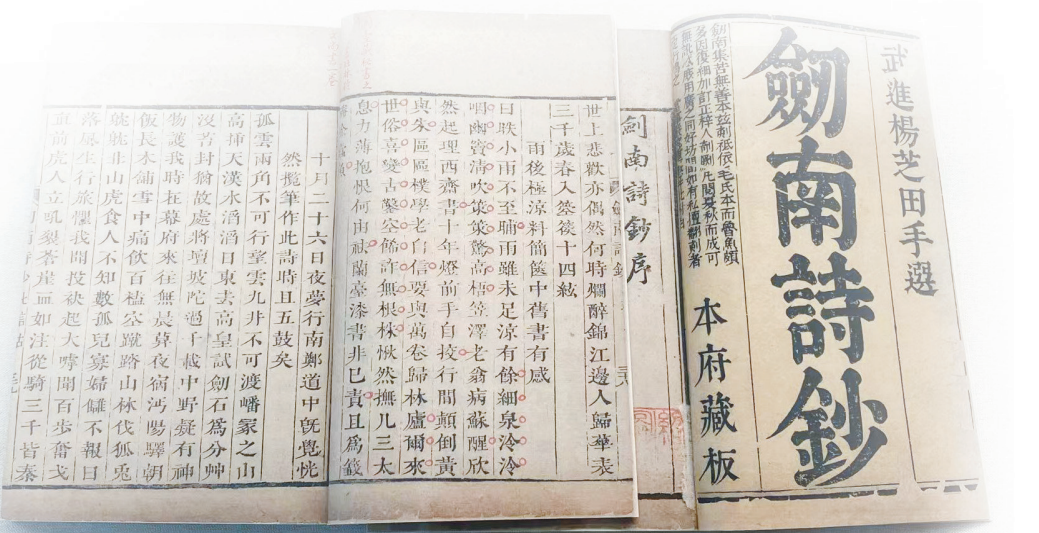 武進楊芝田手選
劒南詩鈔
本府藏板
劍南詩鈔序
世上悲歡亦偶然何時爛醉錦江邊人歸華表
三千歲春入箜篌十四絃
雨後極涼料簡篋中舊書有感
日昳小雨不至晡雨雖未足涼有餘細泉泠泠
唱幽竇清吹策策驚高梧笠澤老翁病蘇醒欣
然起理西齋書十年燈前手自校行間顛倒黃
與朱區區樸學老自信要與萬卷歸林廬爾來
世俗喜變古鑿空飾詐無根株愀然撫几三太
息力薄抱恨何由祛蘭臺漆書非已責且為籤
十月二十六日夜夢行南鄭道中既覺恍
然攬筆作此詩時且五鼓矣
孤雲兩角不可行望雲九井不可渡嶓冢之山
高插天漢水滔滔日東去高皇試劍石為分艸
沒苔封猶故處將壇坡陀過千載中野疑有神
物護我時在幕府來往無晨莫夜宿沔陽驛朝
飯長木舖雪中痛飲百榼空蹴踏山林伐狐兔
眈眈北山虎食人不知數孤兒寡婦讎不報日
落風生行旅懼我聞投袂起大嘑聞百步奮戈
直前虎人立吼裂蒼崖血如注從騎三千皆秦